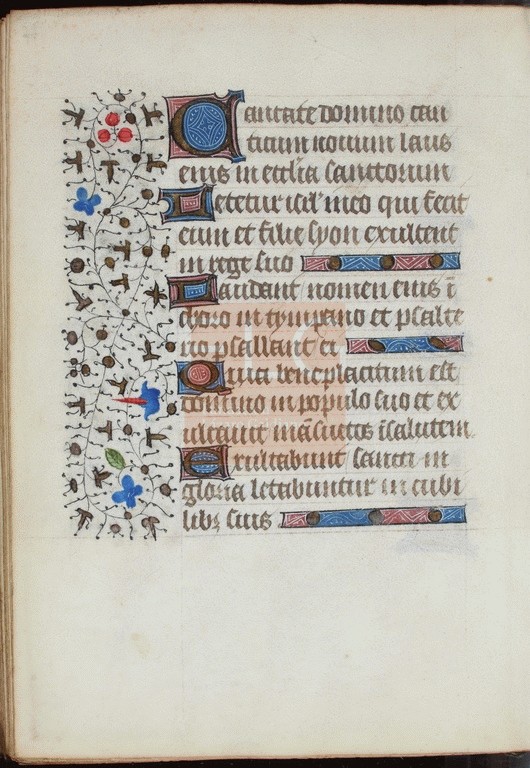 Cantate domino can
ticum nouum laus
eius in eccłia sanctorum
Letetur isrl' in eo qui fecit
eum et filie syon exultent
in rege suo
Laudant nomen eius ī
choro in tympano et psalte
rio psallant ei
Quia beneplacitum est
domino in populo suo et ex
ultauit māsuetos ī salutem
Exultabunt sancti in
gloria letabuntur in cubi
libȝ suis